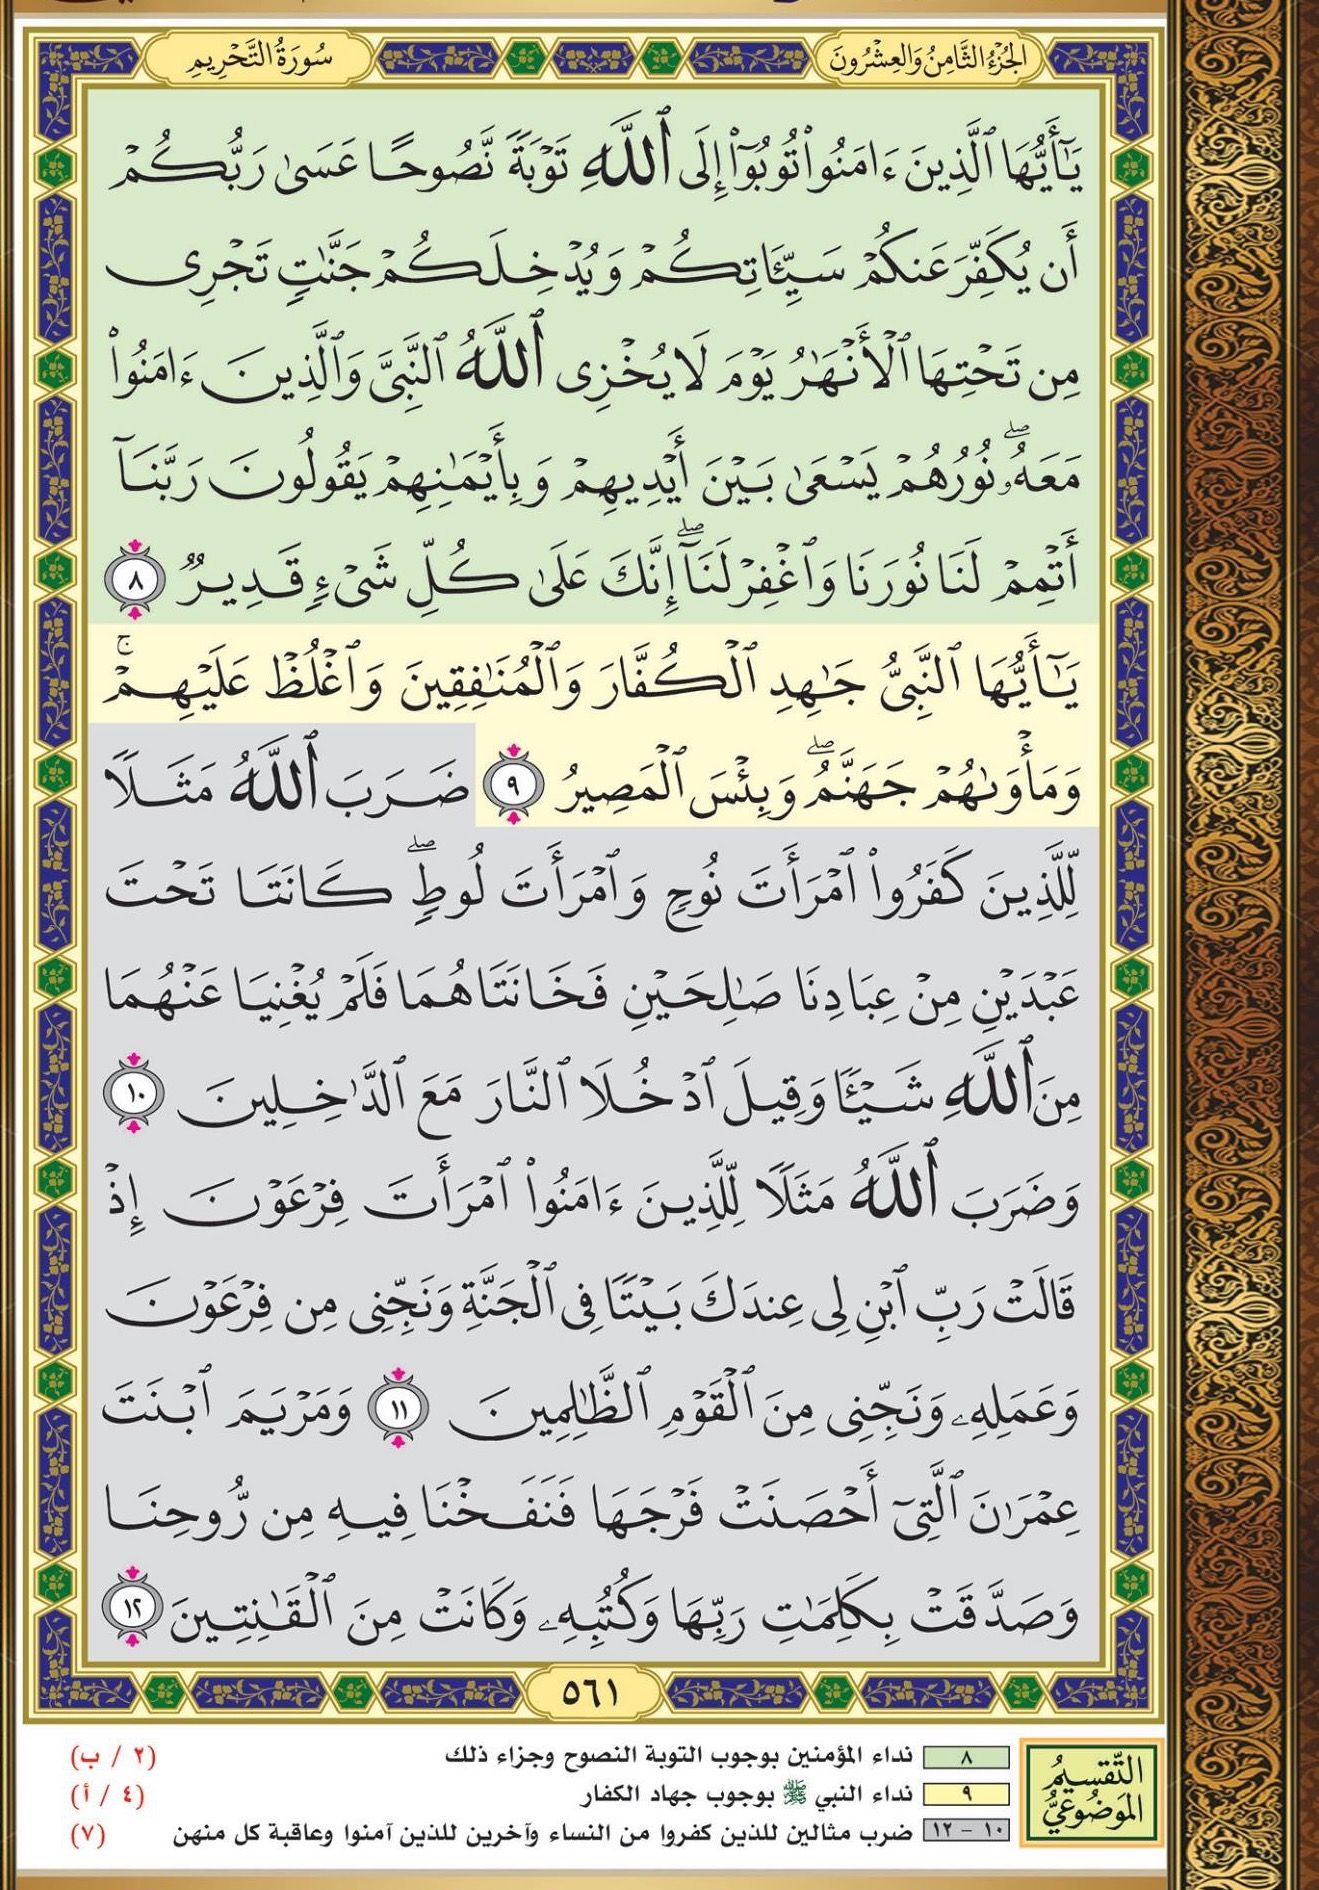 الجُزْءُ الثَّامِنُ وَالعِشْرُونَ
سُورَةُ التَّحْرِيمِ
يَٰٓأَيُّهَا ٱلَّذِينَ ءَامَنُوا۟ تُوبُوٓا۟ إِلَى ٱللَّهِ تَوْبَةً نَّصُوحًا عَسَىٰ رَبُّكُمْ
أَن يُكَفِّرَ عَنكُمْ سَيِّـَٔاتِكُمْ وَيُدْخِلَكُمْ جَنَّٰتٍ تَجْرِى
مِن تَحْتِهَا ٱلْأَنْهَٰرُ يَوْمَ لَا يُخْزِى ٱللَّهُ ٱلنَّبِىَّ وَٱلَّذِينَ ءَامَنُوا۟
مَعَهُۥ ۖ نُورُهُمْ يَسْعَىٰ بَيْنَ أَيْدِيهِمْ وَبِأَيْمَٰنِهِمْ يَقُولُونَ رَبَّنَآ
أَتْمِمْ لَنَا نُورَنَا وَٱغْفِرْ لَنَآ ۖ إِنَّكَ عَلَىٰ كُلِّ شَىْءٍ قَدِيرٌ ٨
يَٰٓأَيُّهَا ٱلنَّبِىُّ جَٰهِدِ ٱلْكُفَّارَ وَٱلْمُنَٰفِقِينَ وَٱغْلُظْ عَلَيْهِمْ ۚ
وَمَأْوَىٰهُمْ جَهَنَّمُ ۖ وَبِئْسَ ٱلْمَصِيرُ ٩ ضَرَبَ ٱللَّهُ مَثَلًا
لِّلَّذِينَ كَفَرُوا۟ ٱمْرَأَتَ نُوحٍ وَٱمْرَأَتَ لُوطٍ ۖ كَانَتَا تَحْتَ
عَبْدَيْنِ مِنْ عِبَادِنَا صَٰلِحَيْنِ فَخَانَتَاهُمَا فَلَمْ يُغْنِيَا عَنْهُمَا
مِنَ ٱللَّهِ شَيْـًٔا وَقِيلَ ٱدْخُلَا ٱلنَّارَ مَعَ ٱلدَّٰخِلِينَ ١٠
وَضَرَبَ ٱللَّهُ مَثَلًا لِّلَّذِينَ ءَامَنُوا۟ ٱمْرَأَتَ فِرْعَوْنَ إِذْ
قَالَتْ رَبِّ ٱبْنِ لِى عِندَكَ بَيْتًا فِى ٱلْجَنَّةِ وَنَجِّنِى مِن فِرْعَوْنَ
وَعَمَلِهِۦ وَنَجِّنِى مِنَ ٱلْقَوْمِ ٱلظَّٰلِمِينَ ١١ وَمَرْيَمَ ٱبْنَتَ
عِمْرَٰنَ ٱلَّتِىٓ أَحْصَنَتْ فَرْجَهَا فَنَفَخْنَا فِيهِ مِن رُّوحِنَا
وَصَدَّقَتْ بِكَلِمَٰتِ رَبِّهَا وَكُتُبِهِۦ وَكَانَتْ مِنَ ٱلْقَٰنِتِينَ ١٢
٥٦١
التَّقسِيمُ
المَوضُوعِيُّ
٨ نداء المؤمنين بوجوب التوبة النصوح وجزاء ذلك (٢ / ب)
٩ نداء النبي ﷺ بوجوب جهاد الكفار (٤ / أ)
١٠ - ١٢ ضرب مثالين للذين كفروا من النساء وآخرين للذين آمنوا وعاقبة كل منهن (٧)